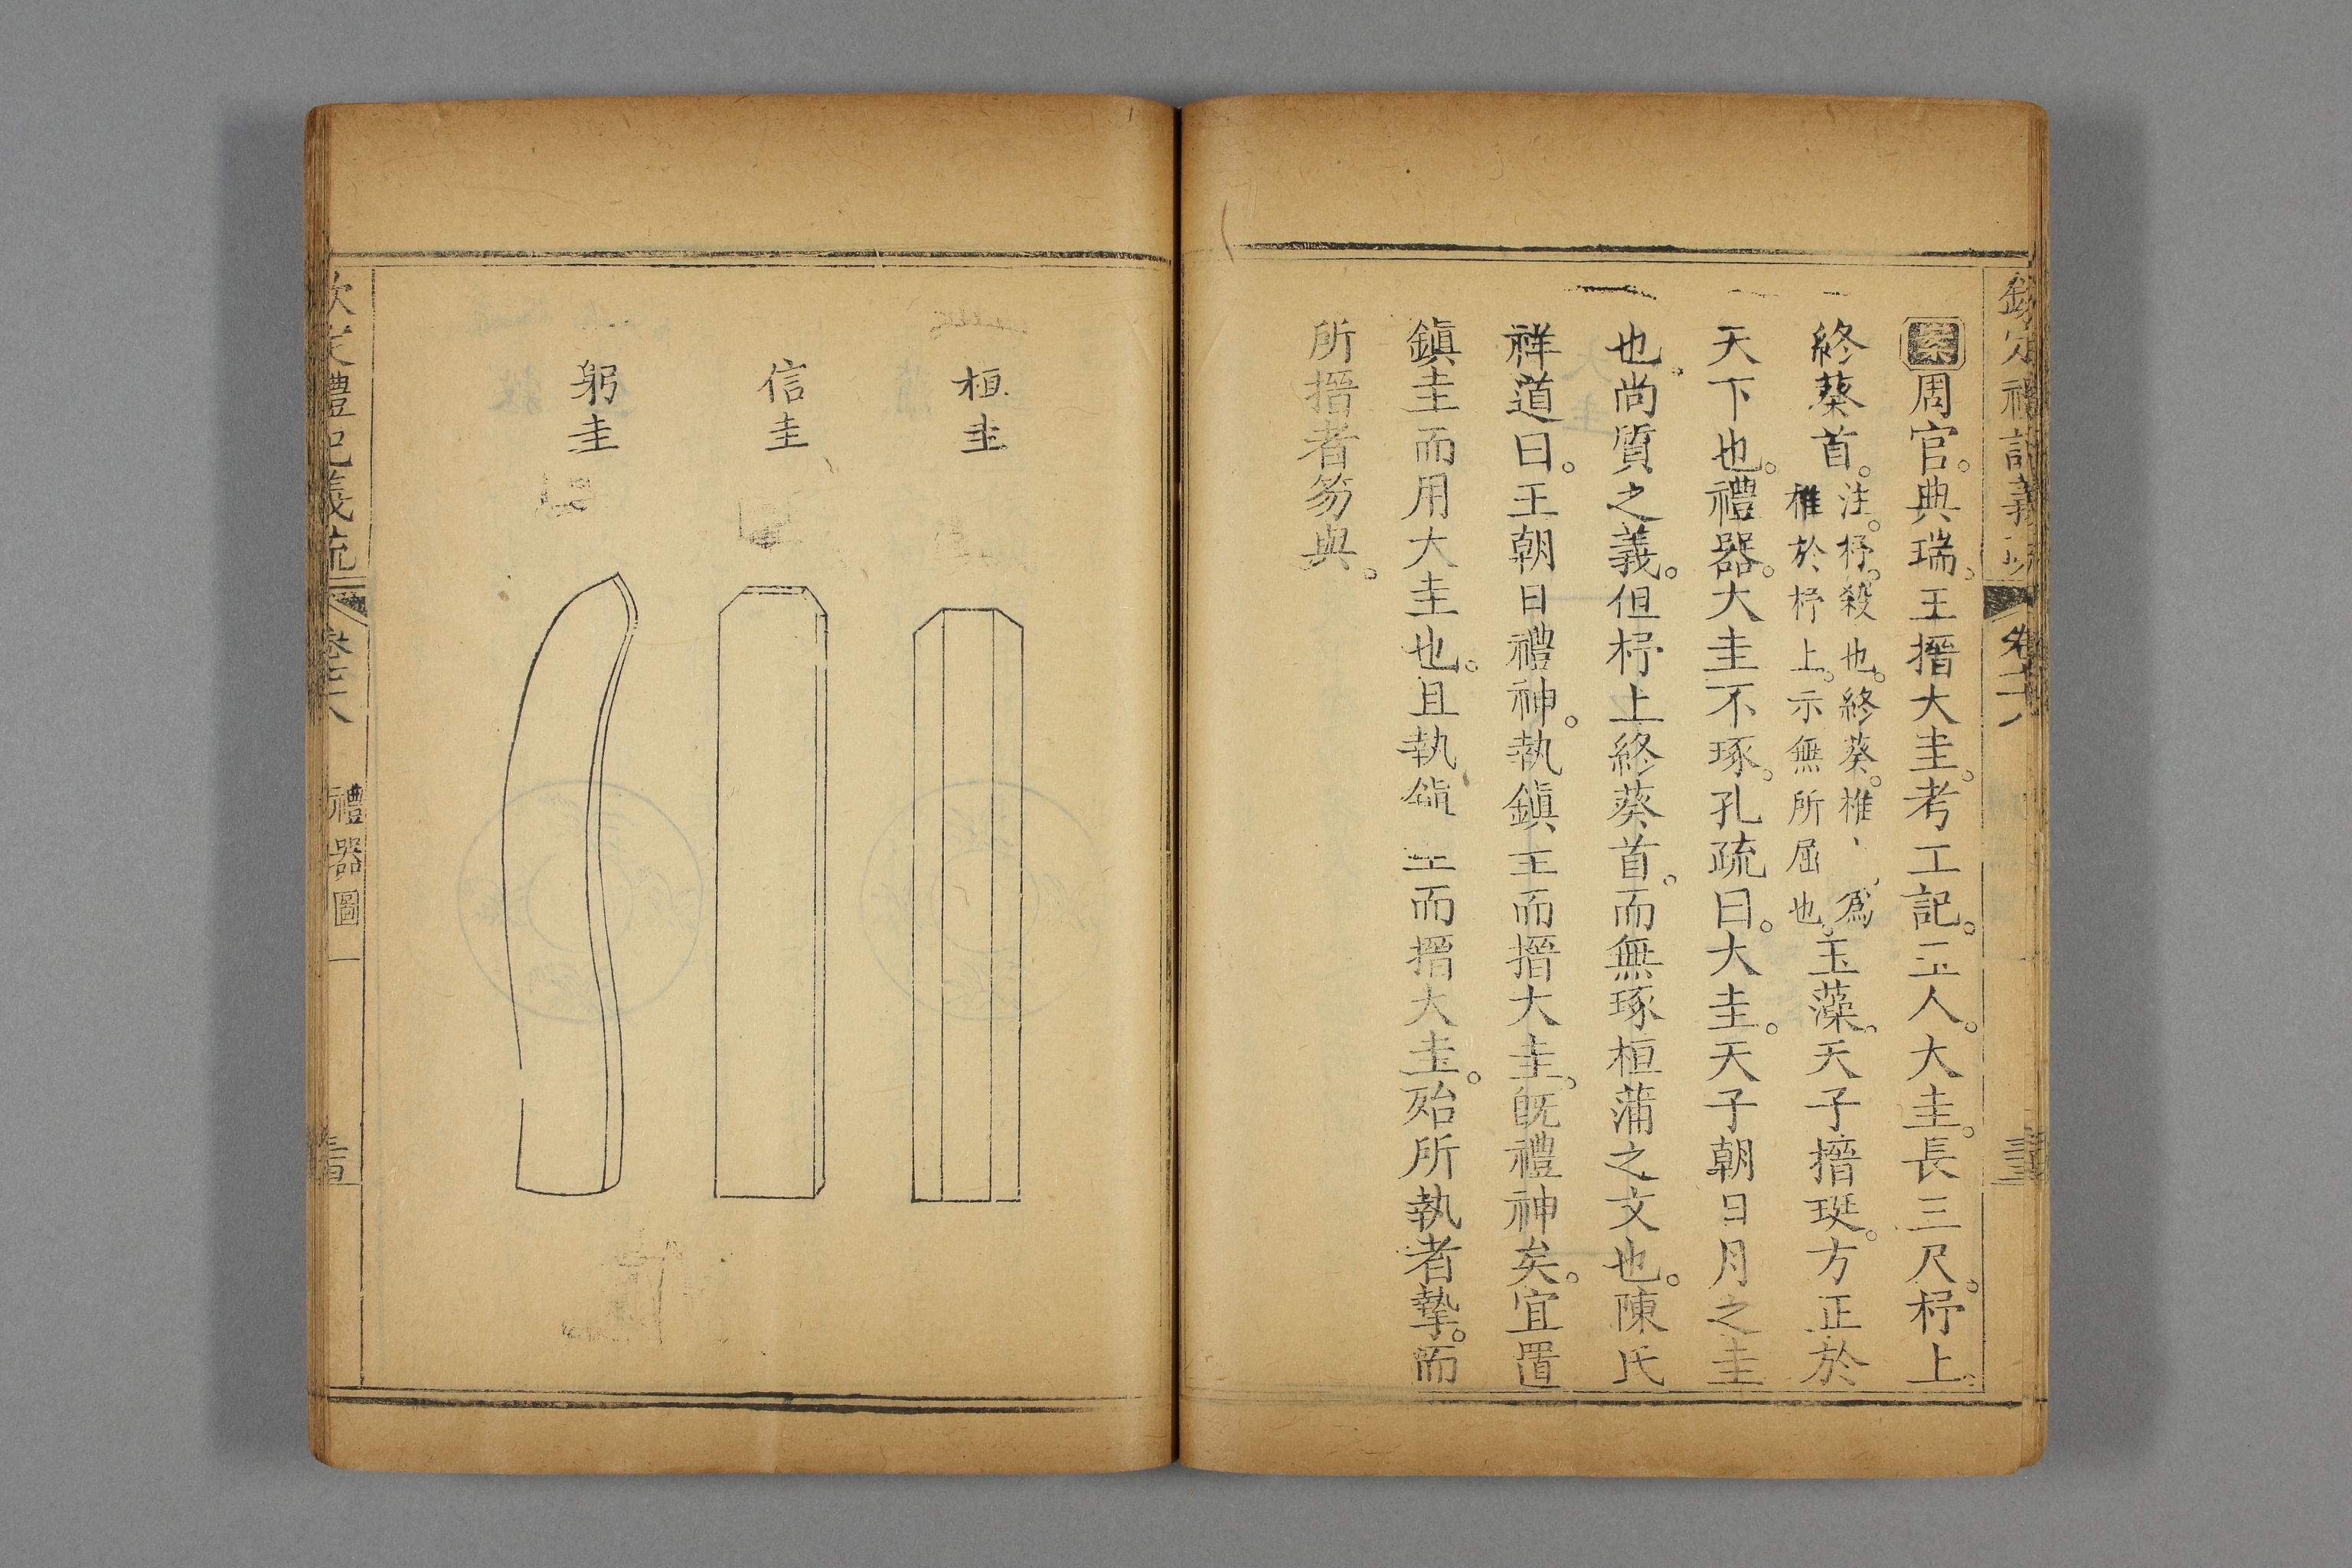 案周官。典瑞。王搢大圭。考工記。玉人。大圭。長三尺。杼上。
終葵首。注。杼。殺也。終葵。椎、為
椎於杼上。示無所屈也。玉藻。天子搢珽。方正於
天下也。禮器。大圭不琢。孔疏曰。大圭。天子朝日月之圭
也。尚質之義。但杼上終葵首。而無琢桓蒲之文也。陳氏
祥道曰。王朝日禮神。執鎮圭而搢大圭。既禮神矣。宜置
鎮圭而用大圭也。且執鎮圭而搢大圭。殆所執者摯。而
所搢者笏與。
桓圭
信圭
躬圭
欽定禮記義疏 卷
禮器圖一